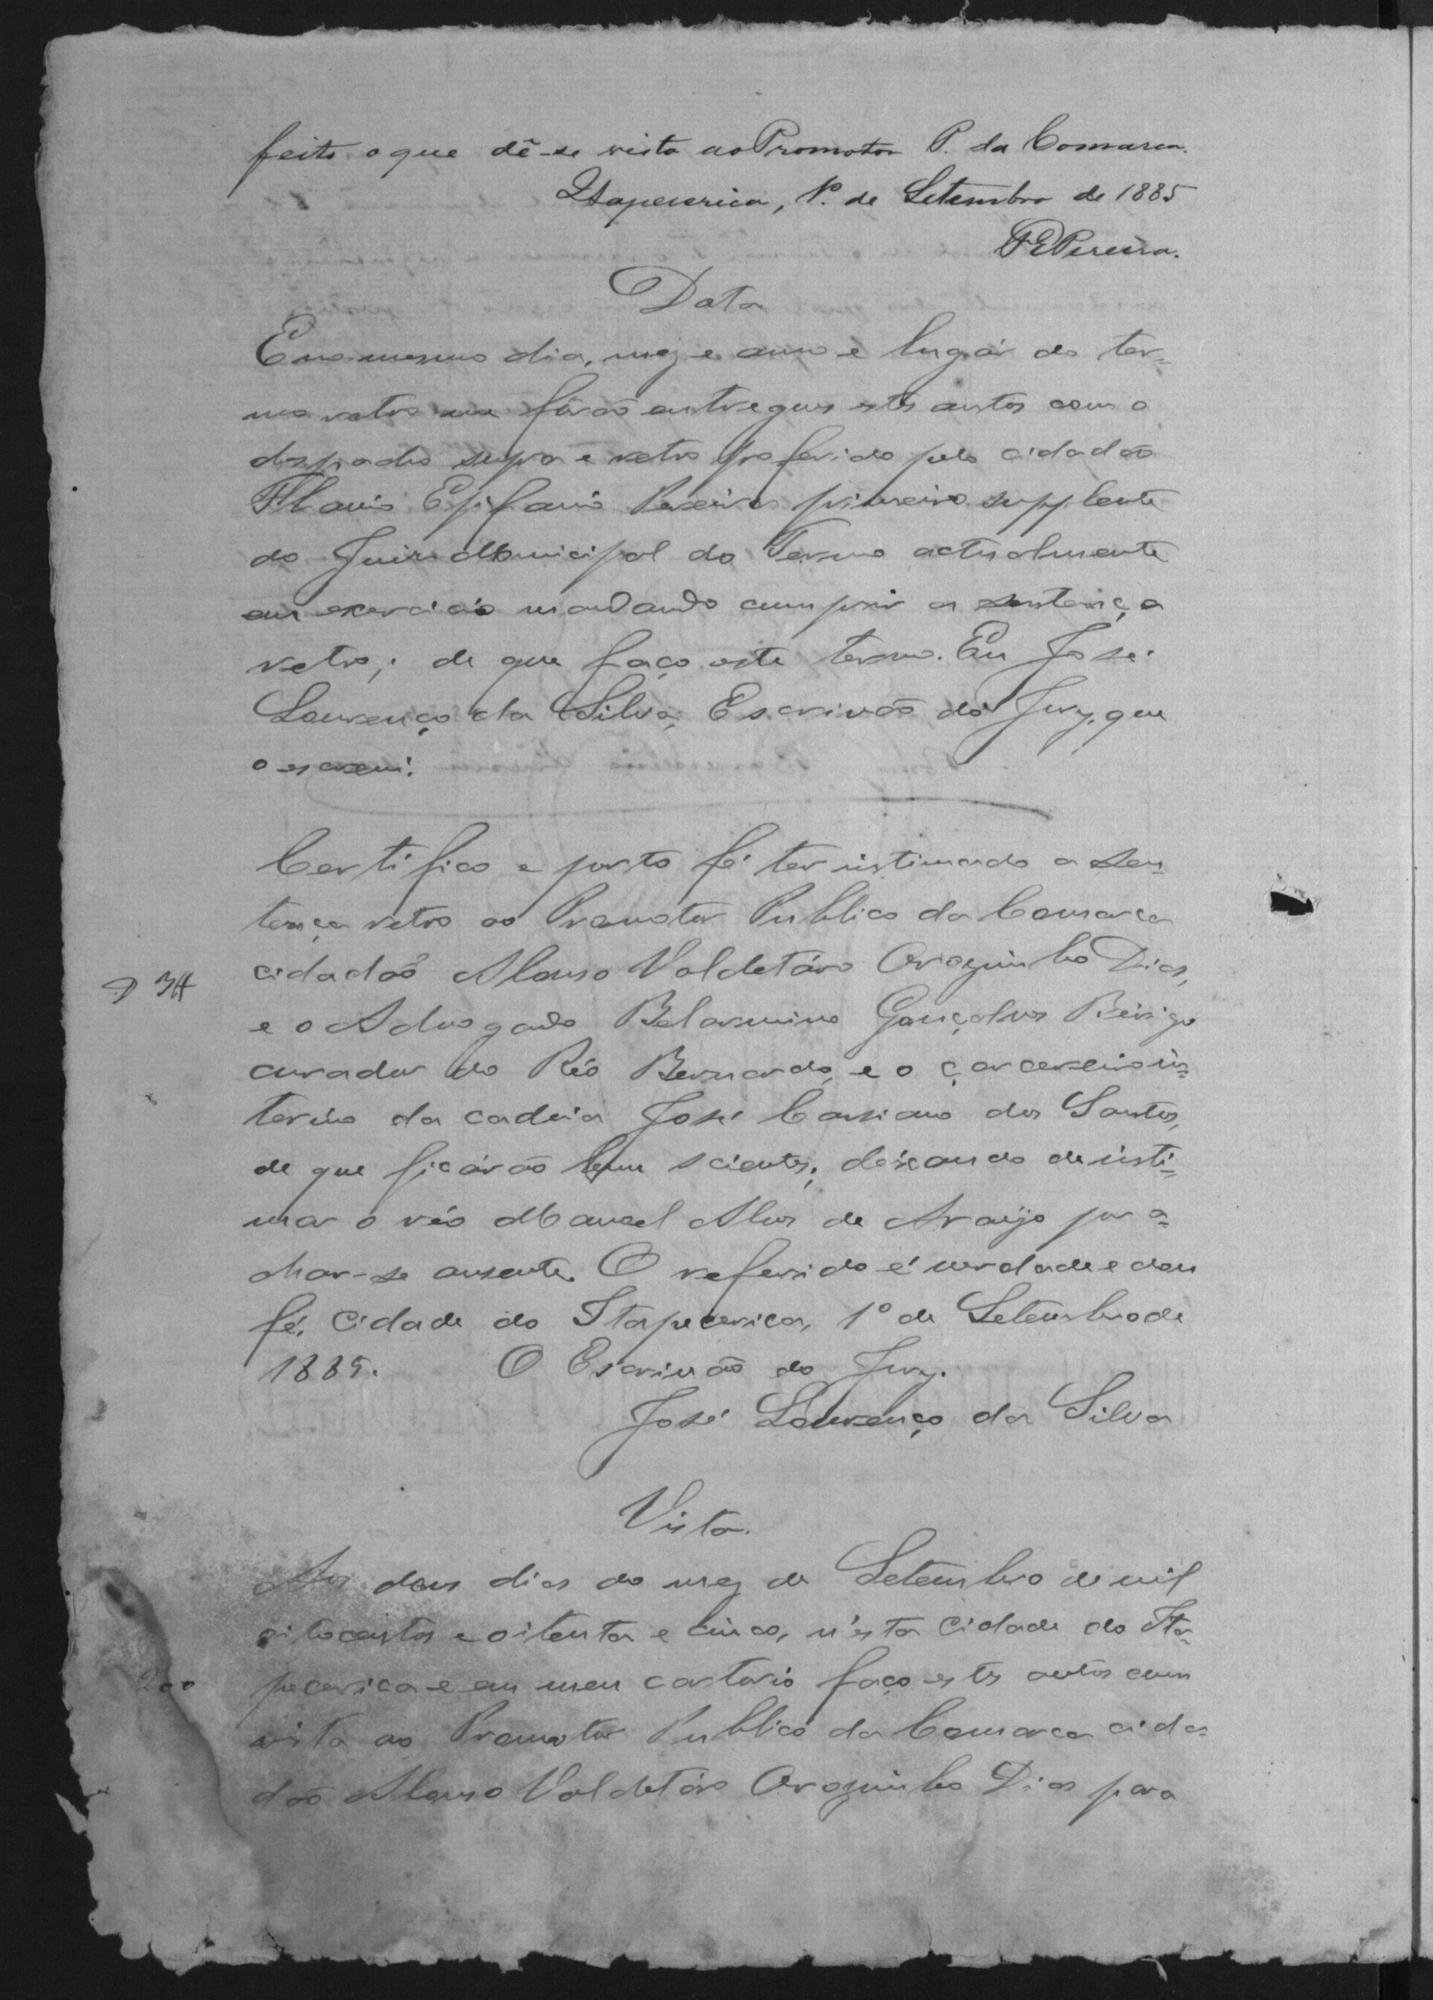 feito o que dê-se vista ao Promotor P. da Comarca.
Itapecerica, 1º. de Setembro de 1885
F E Pereira.
Data
E no mesmo dia, mez e anno e lugár do ter=
mo retro me fôrão entregues estes autos com o
despacho supra e retro proferido pelo cidadão
Flavio Epifanio Pereira primeiro supplente
do Juiz Municipal do Termo actualmente
em exercicio mandando cumprir a sentença
retro; de que faço este termo. Eu José
Lourenço da Silva, Escrivão do Jury, que
o escrevi.
Certifico e porto fé ter intimado a sen=
tença retro ao Promotor Publico da Comarca
cidadão Alonso Valdetáro Dias,
e o Advogado Belarmino Gonçalves
curador do Réo Bernardo, e o carcereiro in=
terino da cadeia José Cassiano dos Santos,
de que ficárão bem scientes; deixando de inti=
mar o réo Manoel Alves de Araujo por a=
char-se ausente. O referido é verdade e dou
fé. Cidade do Itapecerica, 1º de Setembro de
1885. O Escrivão do Jury.
José Lourenço da Silva
Vista.
Aos dous dias do mez de Setembro de mil
oitocentos e oitenta e cinco, n'esta Cidade do Ita=
200 pecerica e em meu cartorio faço estes autos com
vista ao Promotor Publico da Comarca cida=
dão Alonso Valdetáro Dias para